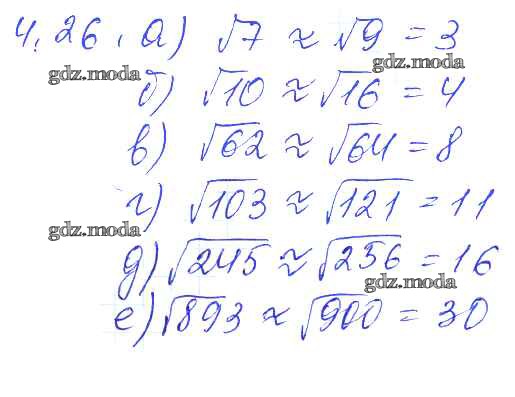 4.26. а) √7 ≈ √9 = 3
gdz.moda
gdz.moda
б) √10 ≈ √16 = 4
в) √62 ≈ √64 = 8
г) √103 ≈ √121 = 11
gdz.moda
д) √245 ≈ √256 = 16
gdz.moda
е) √893 ≈ √900 = 30